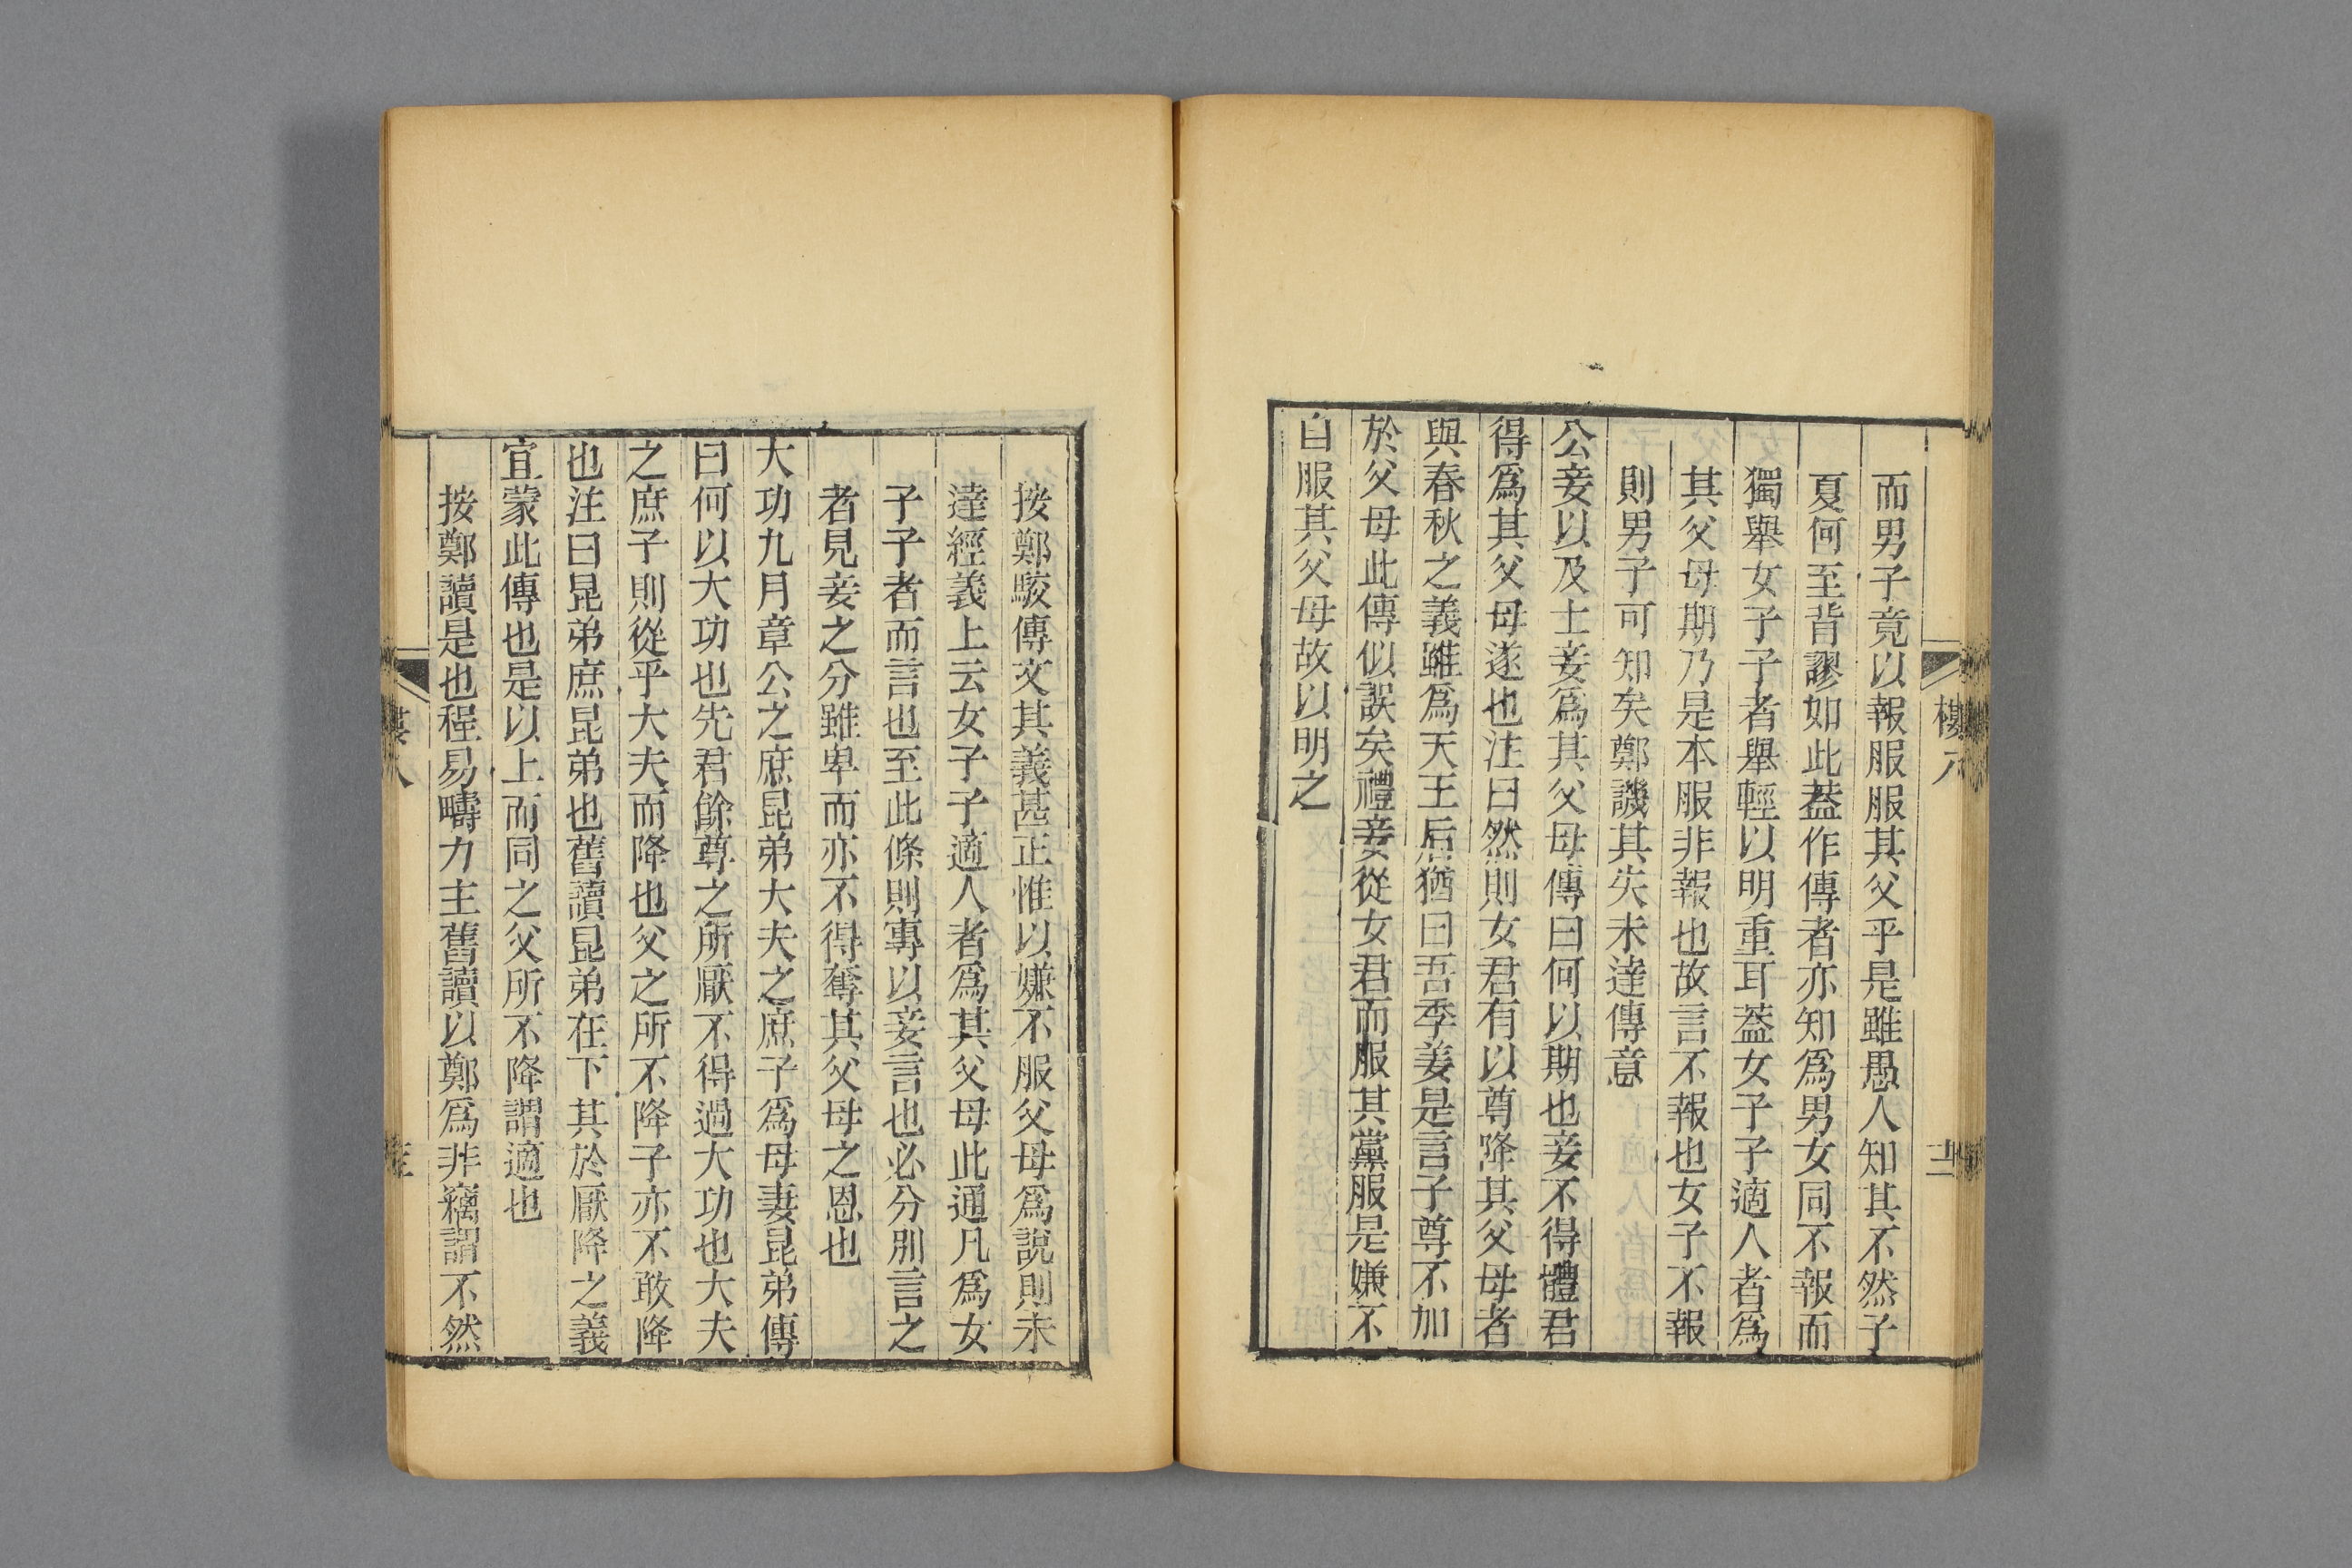 而男子竟以報服服其父乎是雖愚人知其不然子
夏何至背謬如此葢作傳者亦知爲男女同不報而
獨舉女子子者舉輕以明重耳葢女子子適人者爲
其父母期乃是本服非報也故言不報也女子不報
則男子可知矣鄭譏其失未達傳意
公妾以及士妾爲其父母傳曰何以期也妾不得體君
得爲其父母遂也注曰然則女君有以尊降其父母者
與春秋之義雖爲天王后猶曰吾季姜是言子尊不加
於父母此傳似誤矣禮妾從女君而服其黨服是嫌不
自服其父母故以明之
按鄭駮傳文其義甚正惟以嫌不服父母爲說則未
達經義上云女子子適人者爲其父母此通凡爲女
子子者而言也至此條則專以妾言也必分別言之
者見妾之分雖卑而亦不得奪其父母之恩也
大功九月章公之庶昆弟大夫之庶子爲母妻昆弟傳
曰何以大功也先君餘尊之所厭不得過大功也大夫
之庶子則從乎大夫而降也父之所不降子亦不敢降
也注曰昆弟庶昆弟也舊讀昆弟在下其於厭降之義
宜蒙此傳也是以上而同之父所不降謂適也
按鄭讀是也程易疇力主舊讀以鄭爲非竊謂不然